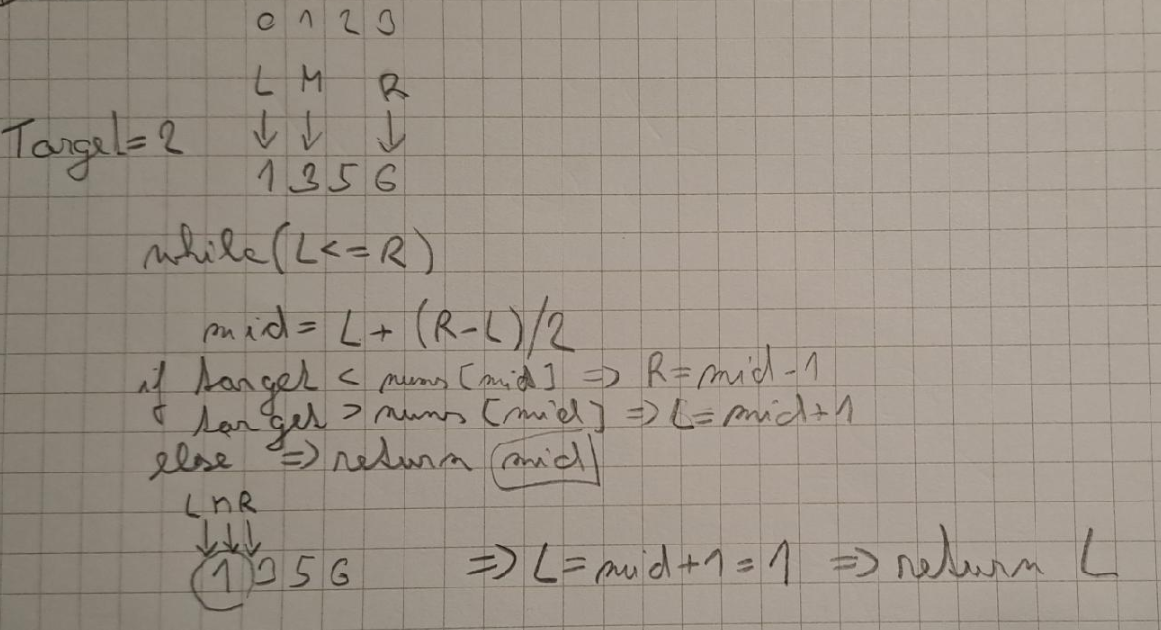 0 1 2 3
L M R
↓ ↓ ↓
Target=2
1 3 5 6
while(L<=R)
mid= L+ (R-L)/2
if target < nums[mid] => R=mid-1
if target > nums[mid] => L=mid+1
else => return mid
L M R
↓↓↓
1 3 5 6 => L=mid+1=1 => return L